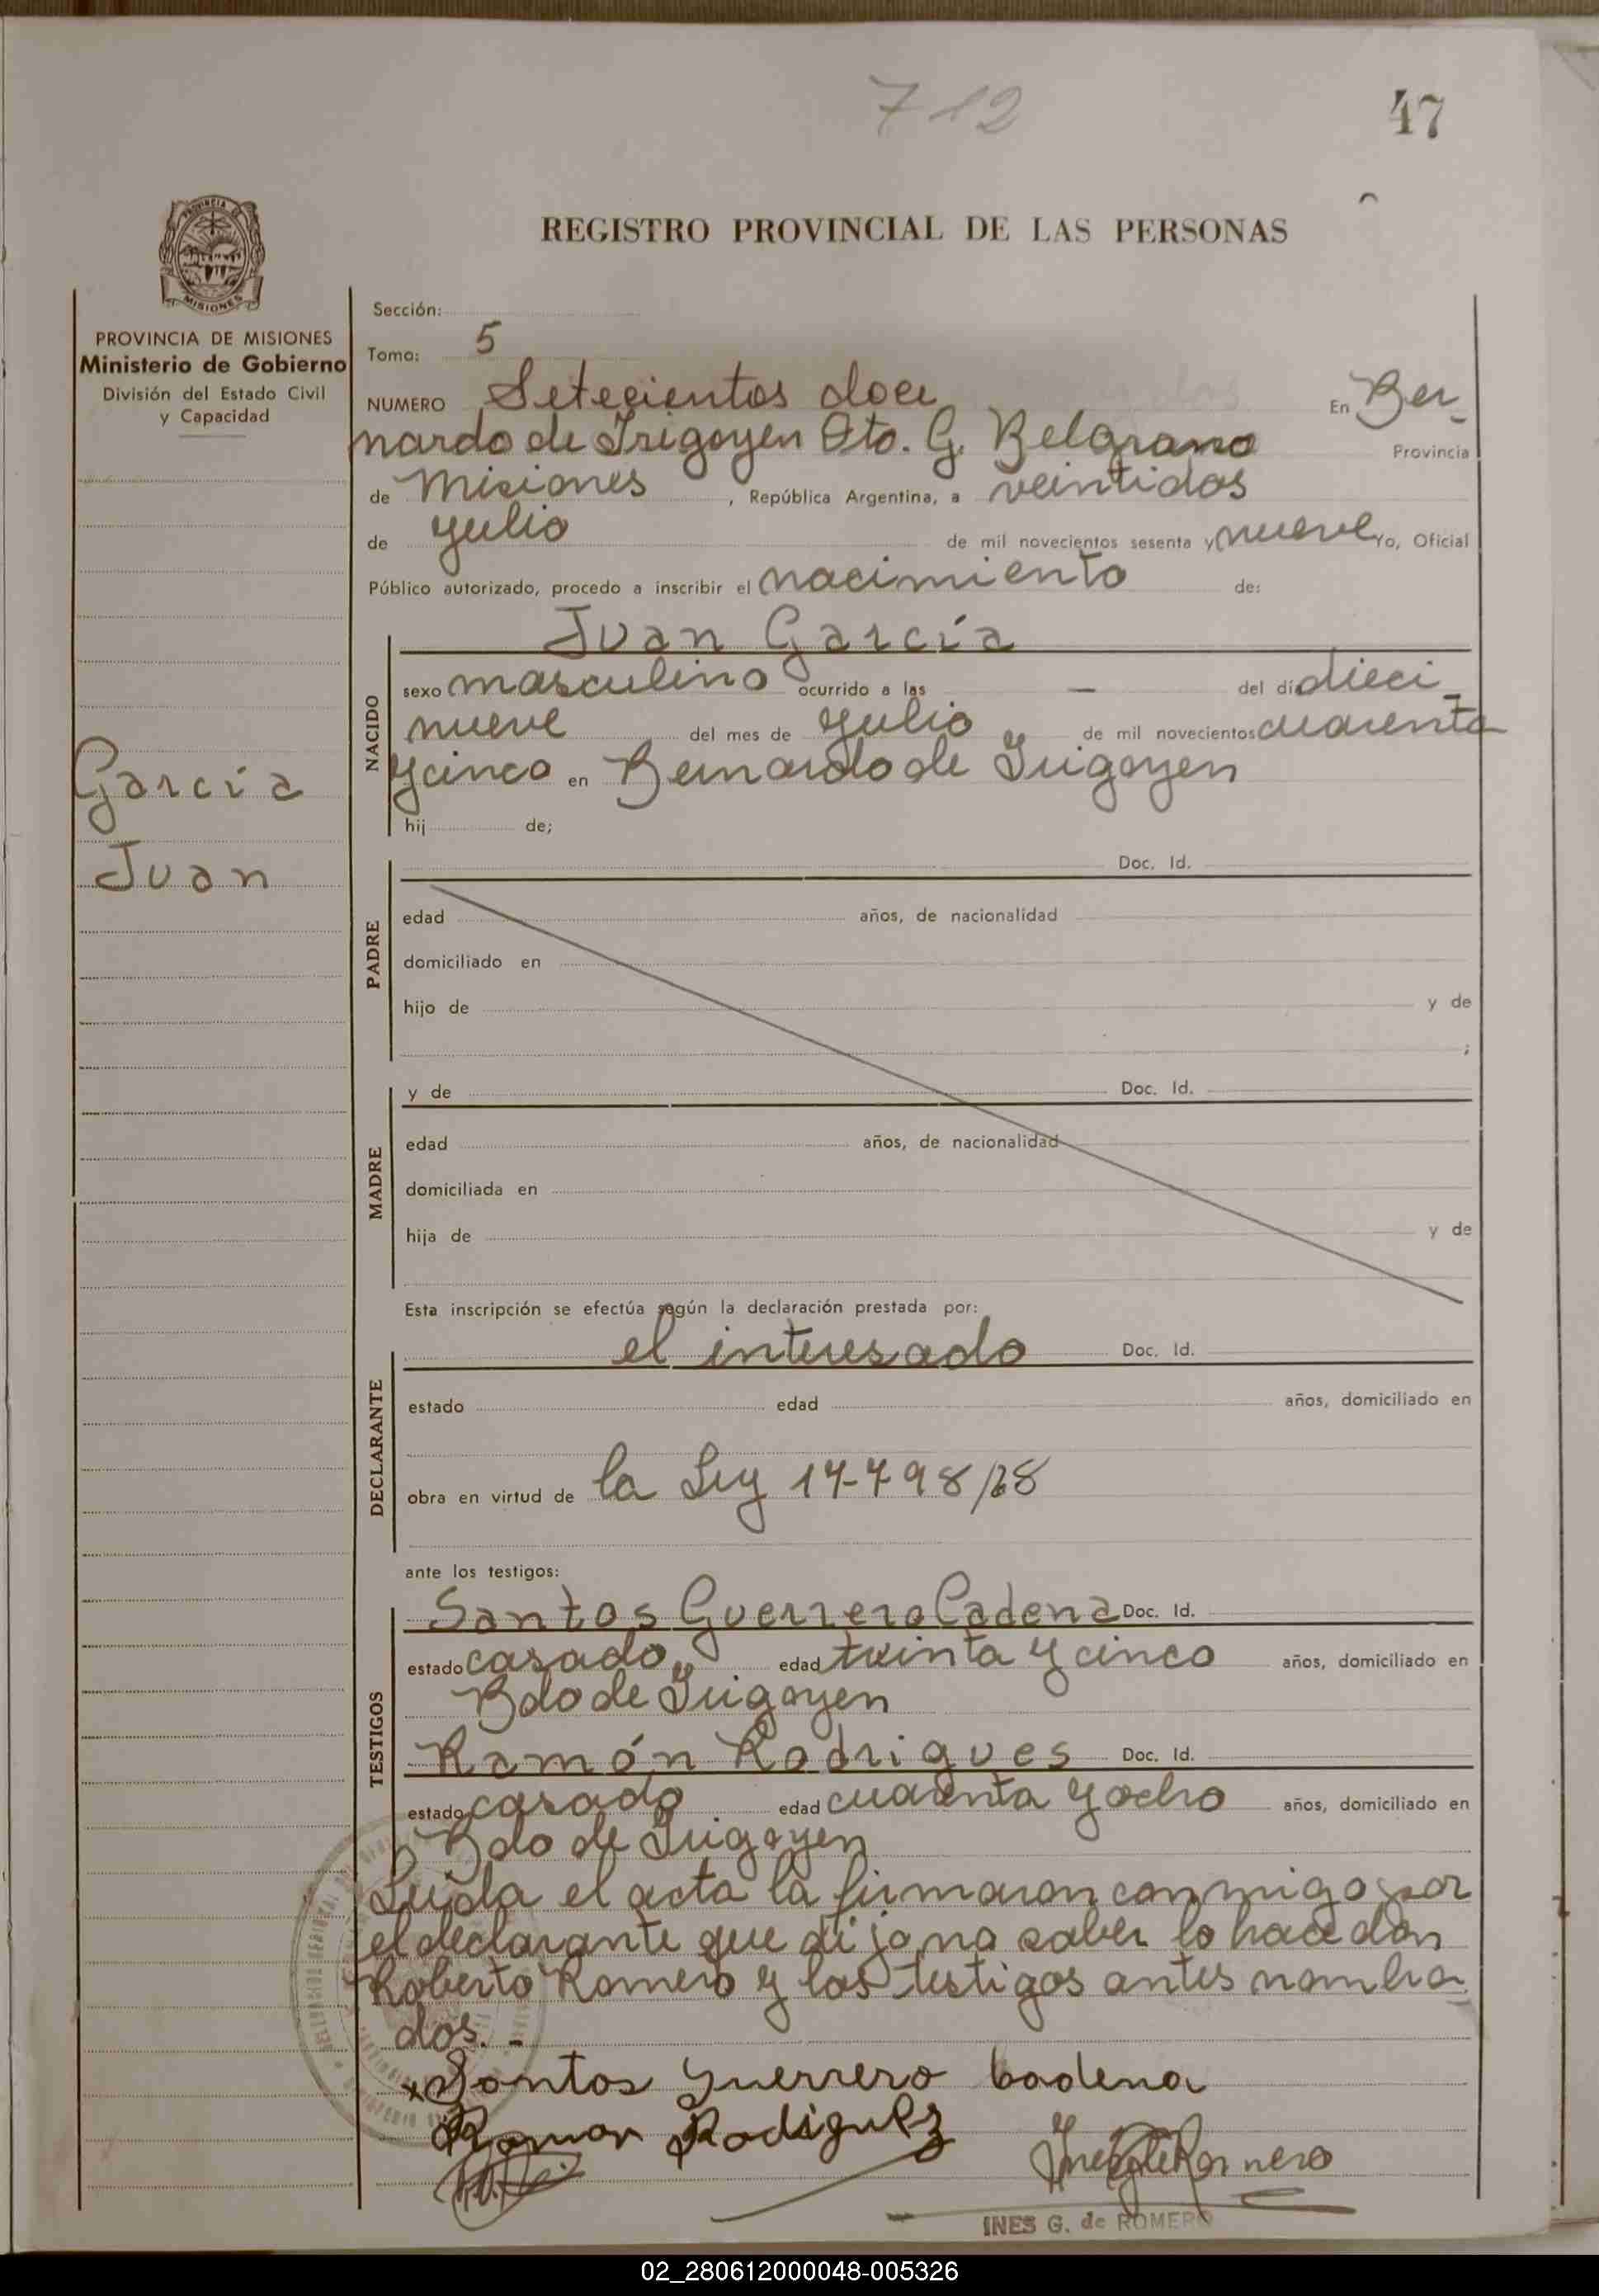 712
47
REGISTRO PROVINCIAL DE LAS PERSONAS
MISIONES
PROVINCIA DE MISIONES
Ministerio de Gobierno
División del Estado Civil
y Capacidad
García
Juan
Sección:
Tomo: 5
NUMERO Setecientos doce En Ber-
nardo de Irigoyen Dto. G. Belgrano Provincia
de Misiones, República Argentina, a veintidos
de julio de mil novecientos sesenta y nueve Yo, Oficial
Público autorizado, procedo a inscribir el nacimiento de:
NACIDO
Juan García
sexo masculino ocurrido a las — del día dieci-
nueve del mes de julio de mil novecientos cuarenta
y cinco en Bernardo de Irigoyen
hij de;
PADRE
Doc. Id.
edad años, de nacionalidad
domiciliado en
hijo de y de
;
MADRE
y de Doc. Id.
edad años, de nacionalidad
domiciliada en
hija de y de
Esta inscripción se efectúa según la declaración prestada por:
DECLARANTE
el interesado Doc. Id.
estado edad años, domiciliado en
obra en virtud de la Ley 17-798/68
ante los testigos:
TESTIGOS
Santos Guerrero Cadena Doc. Id.
estado casado edad treinta y cinco años, domiciliado en
Bdo de Irigoyen
Ramón Rodrigues Doc. Id.
estado casado edad cuarenta y ocho años, domiciliado en
Bdo de Irigoyen
Leída el acta la firmaron conmigo por
el declarante que dijo no saber lo hace don
Roberto Romero y los testigos antes nombra-
dos.-
Santos Guerrero Cadena
Ramon Rodriguez
Ines G de Romero
INES G. de ROMERO
02_280612000048-005326